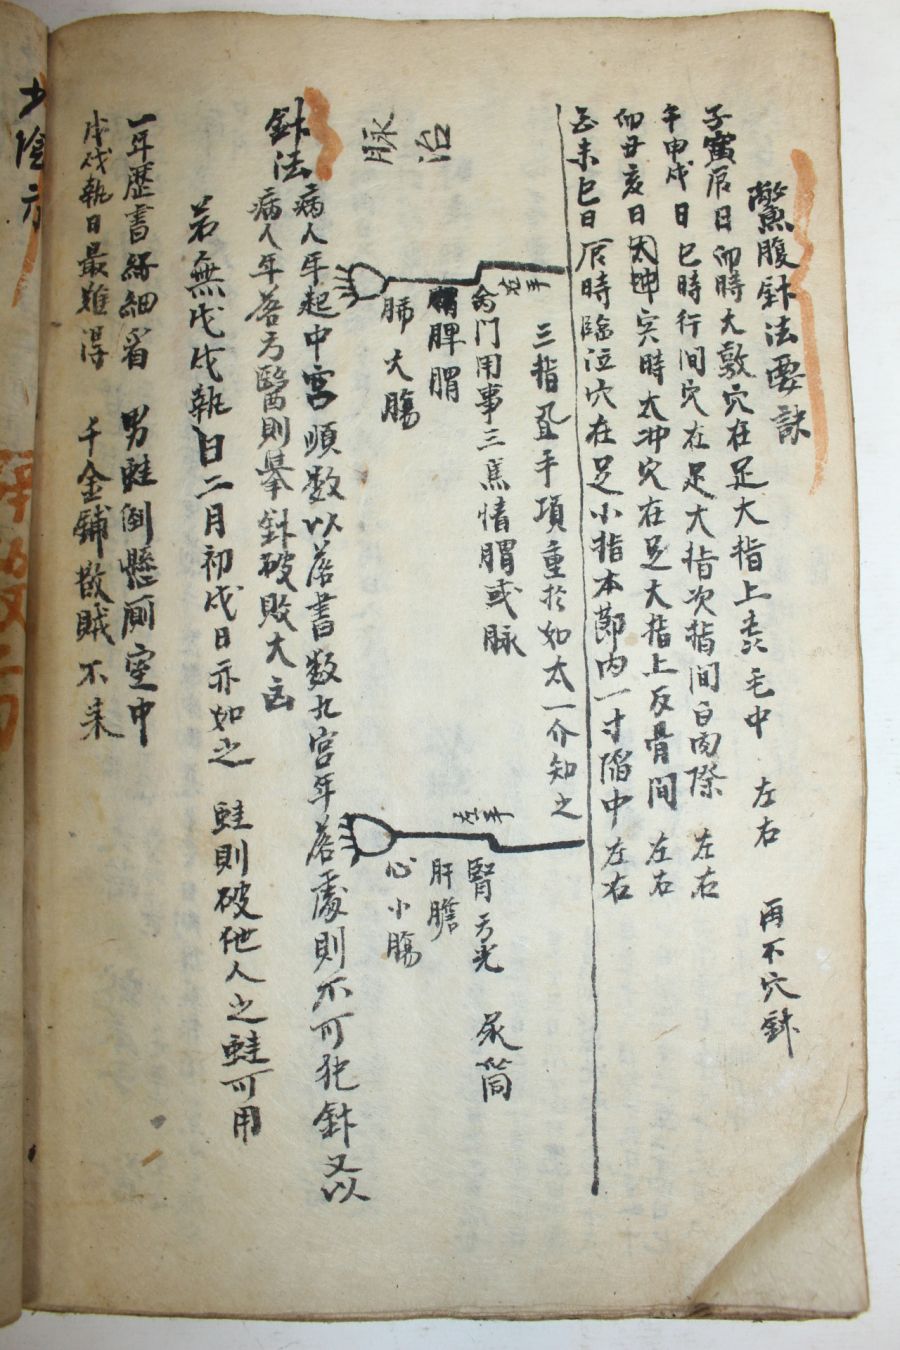 鱉腹針法要訣
子寅辰日卯時大敦穴在足大指上叢毛中 左右 再不穴針
午申戌日巳時行間穴在足大指次指間白肉際 左右
卯丑亥日 時太冲穴在足大指上反骨間 左右
酉未巳日辰時臨泣穴在足小指本節內一寸陷中 左右
三指 手項重於如太一介知之
右手
命门用事三焦情胃或脉
脾胃
肺 大膓
左手
腎 方光 尿筒
肝膽
心 小膓
治
脉
針法
病人年起中宮順数以落書数九宮年落處則不可犯針又以
病人年落方醫則擧針破敗大凶
若無戊戌執日二月初戌日亦如之 蛙則破他人之蛙可用
一年歷書緣細看 男蛙倒懸厠室中
戊戌執日最難得 千金鋪散賊不来
少陰方